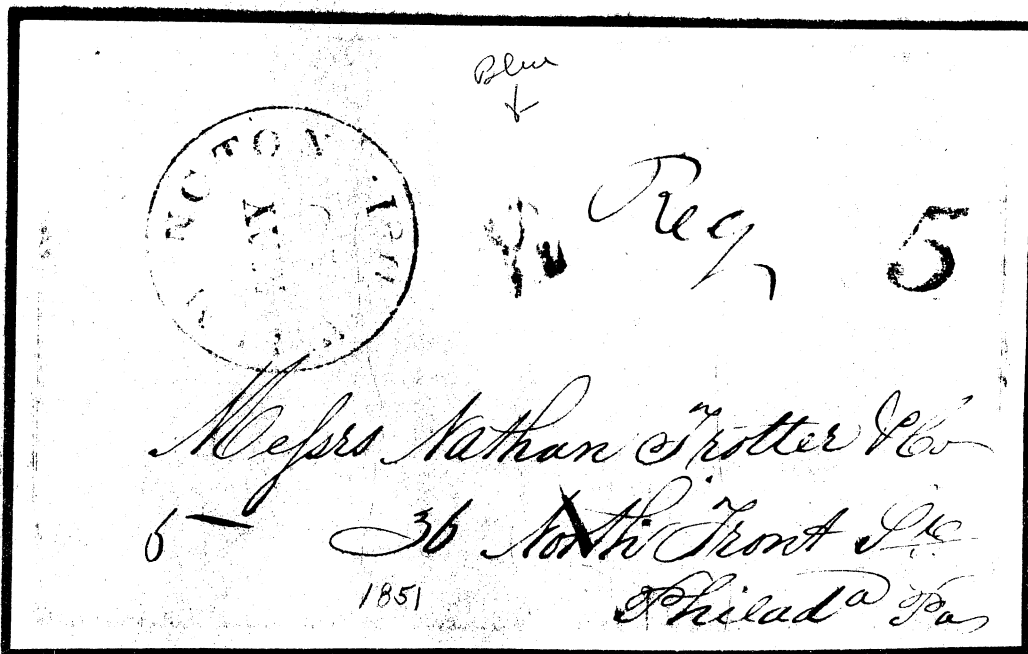 Blue
NGTON Del.
Reg 5
Messrs Nathan Trotter & Co
5 36 North Front Str
1851
Philad a Pa